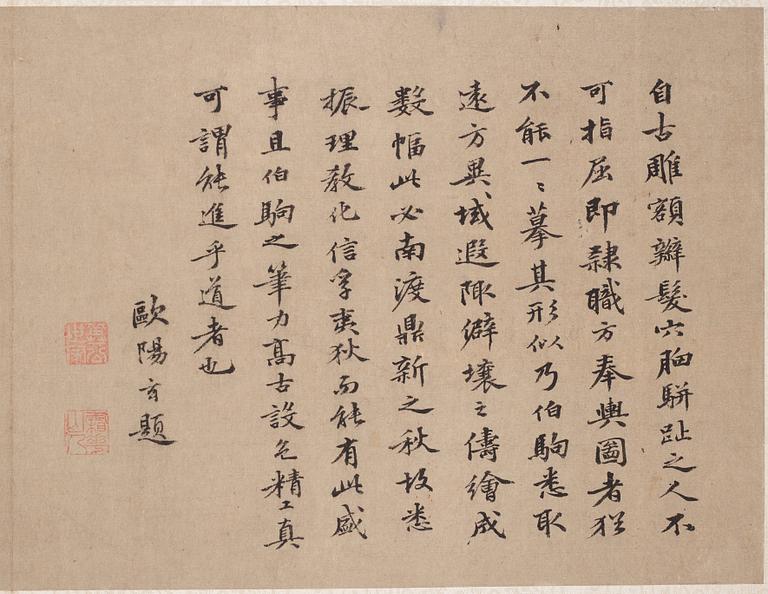 自古雕額辮髮穴胸駢趾之人不
可指屈即隷職方奉輿圖者猶
不能一〻摹其形似乃伯駒悉取
遠方異域遐陬僻壤之儔繪成
數幅此必南渡鼎新之秋故悉
振理教化信孚夷狄而能有此盛
事且伯駒之筆力高古設色精工真
可謂能進乎道者也
歐陽玄題